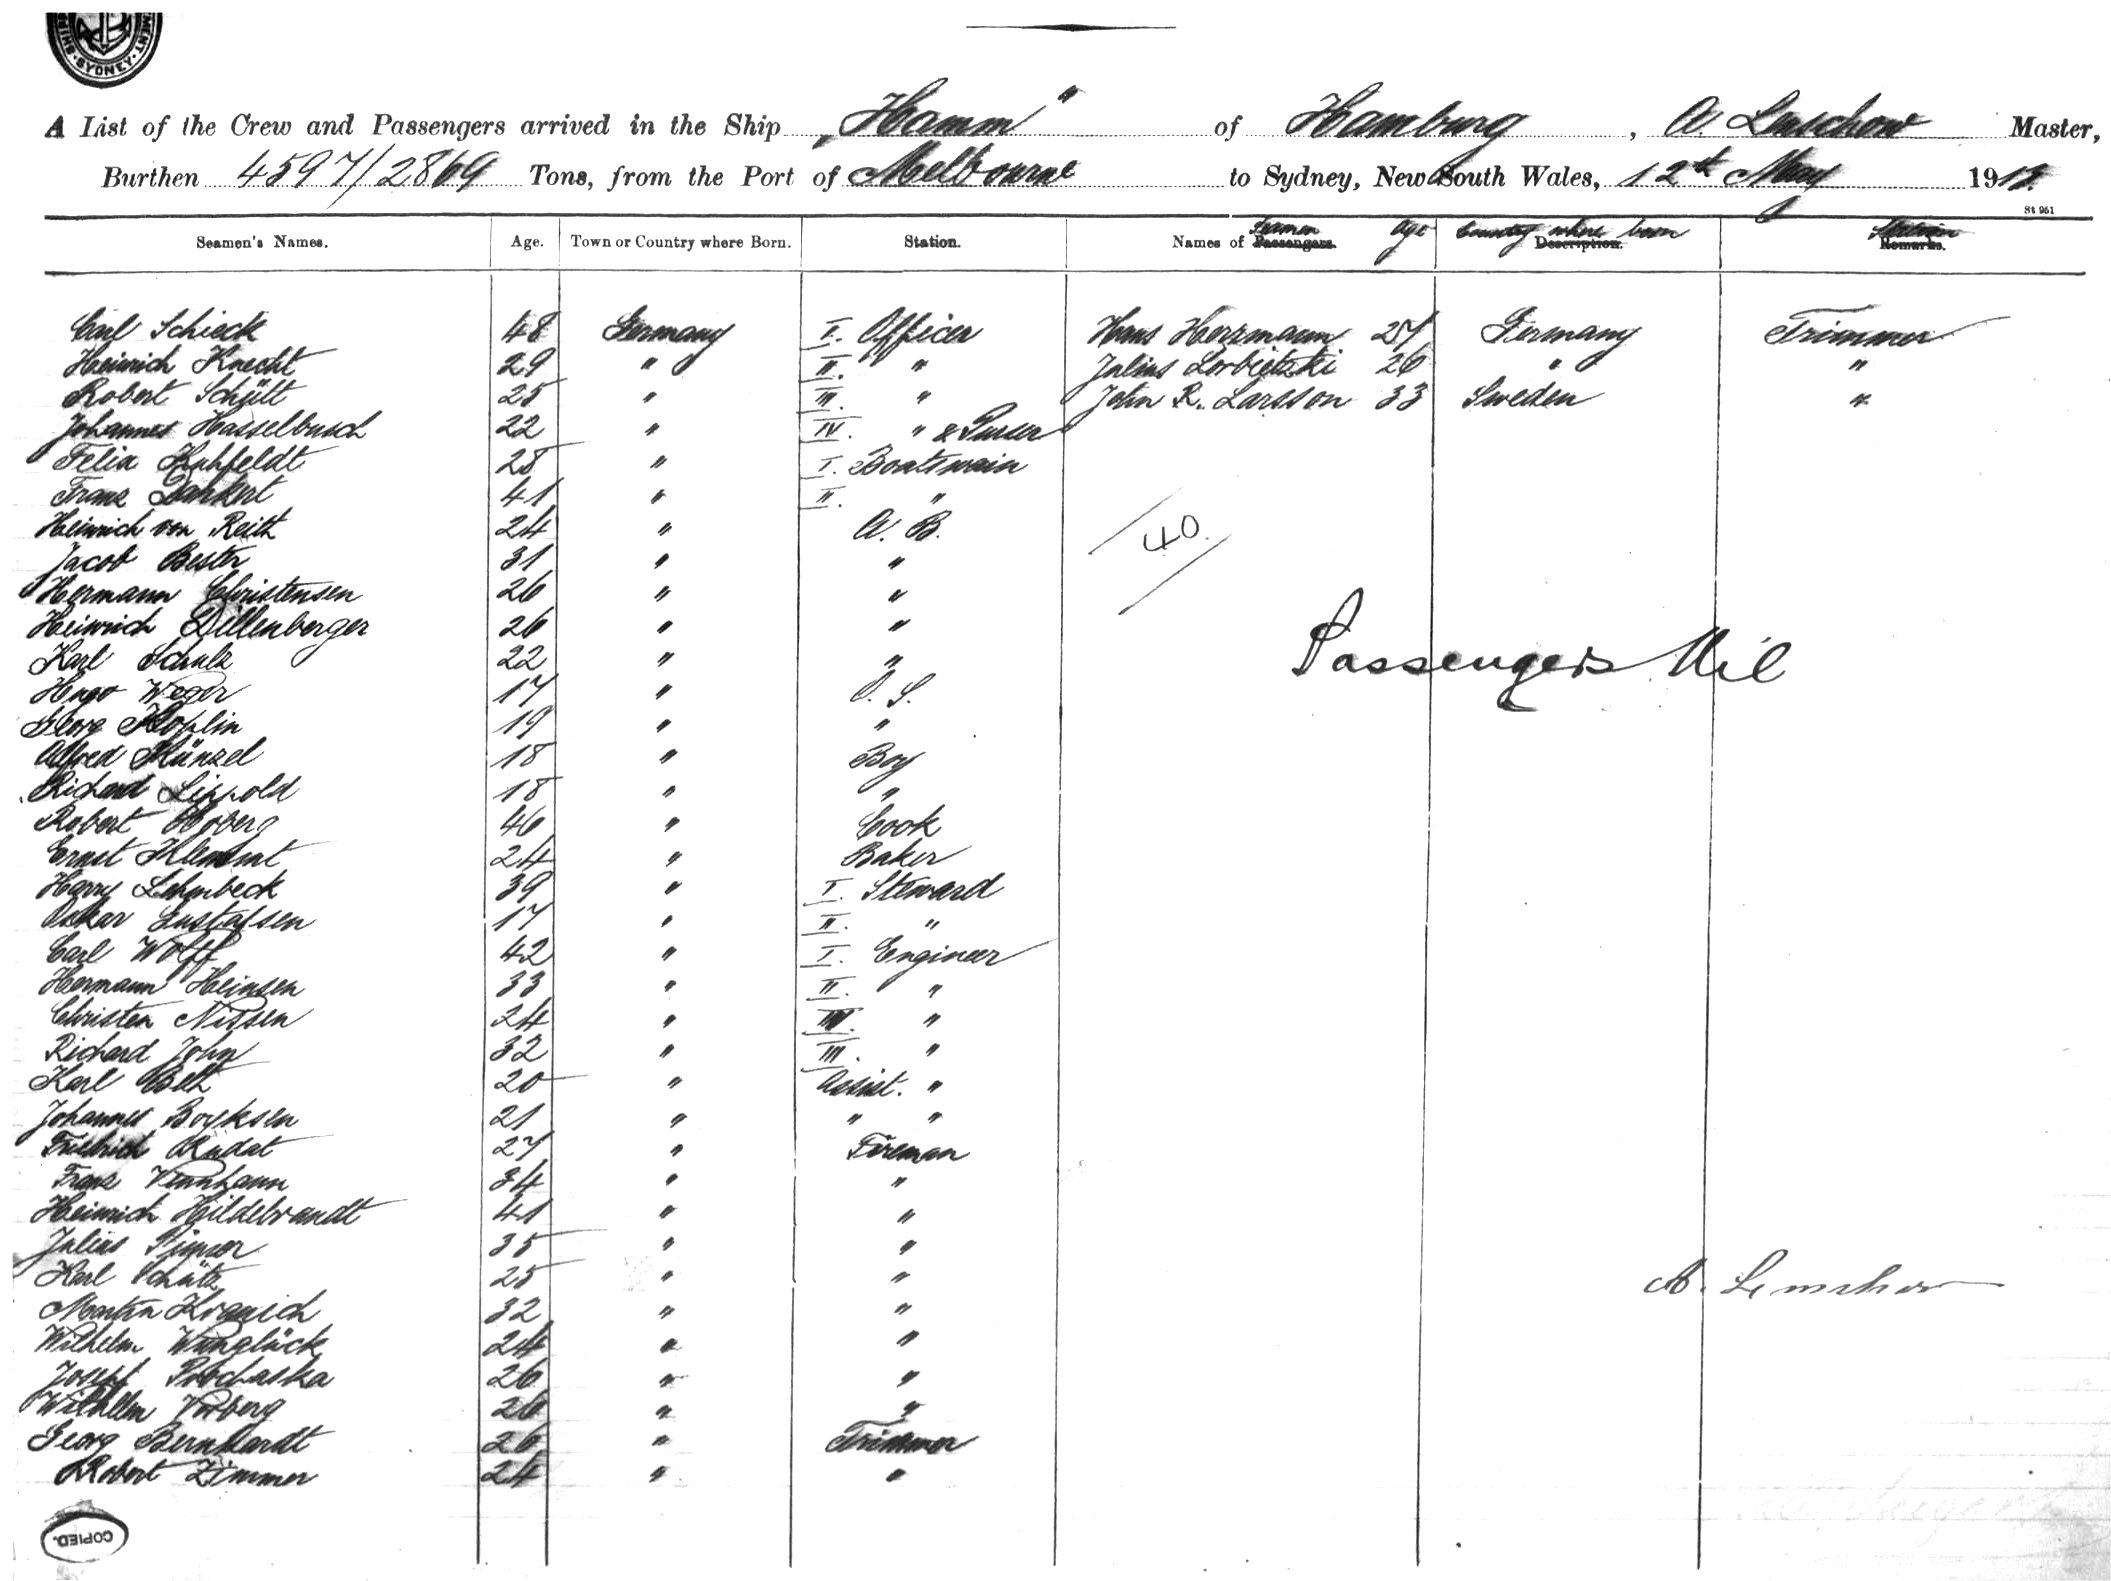 SYDNEY
A List of the Crew and Passengers arrived in the Ship „Hamm" of Hamburg, A. Master,
Burthen 4597/2869 Tons, from the Port of Melbourne to Sydney, New South Wales, 12th May 191
St 951
Seamen's Names. Age. Town or Country where Born. Station. Names of Passengers. Seamen Age Country where born Description. Station Remarks.
Carl Schieck 48 Germany I. Officer Hans Herrmann 27 Germany Trimmer
Heinrich Knecht 29 " II. " Julius Lorbietzki 26 " "
Robert Schütt 25 " III. " John R. Larsson 33 Sweden "
Johannes Hasselbusch 22 " IV. " & Purser
Felix Kuhfeldt 28 " I. Boatswain
Franz Dankert 41 " II. "
Heinrich von Reith 24 " A. B.
40.
Jacob Bester 31 " "
Hermann Christensen 26 " "
Heinrich Dillenberger 26 " "
Passengers Nil
Karl Schulz 22 " "
Hugo Weger 17 " O. S.
Georg Koplin 19 " "
Alfred Hänzel 18 " Boy
Richard Lippold 18 " "
Robert Hoberg 46 " Cook
Ernst Klemmt 24 " Baker
Harry Lehmbeck 39 " I. Steward
Oskar Gustafsen 17 " II. "
Carl Wolff 42 " I. Engineer
Hermann Heinsen 33 " II. "
Christen Nissen 24 " "
Richard John 32 " III. "
Karl 20 " Assist. "
Johannes Boyksen 21 " " "
Friedrich Rudat 27 " Fireman
Franz 34 " "
Heinrich Hildebrandt 41 " "
Julius 35 " "
Karl Schütz 25 " "
Martin Kranich 32 " "
Wilhelm Wunglück 24 " "
Joseph Prochaska 26 " "
Wilhelm 26 " "
Georg Bernhardt 26 " Trimmer
Robert Zimmer 24 " "
COPIED.